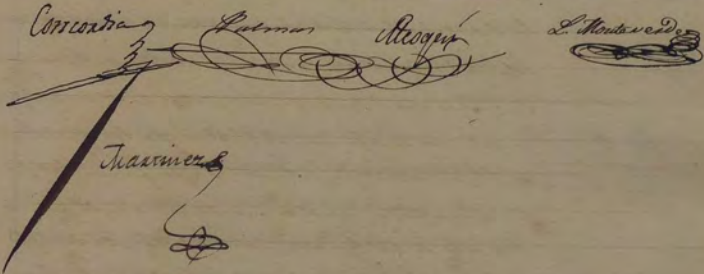 Concordia Palmas Aroquy L. Monteverde
Martinez